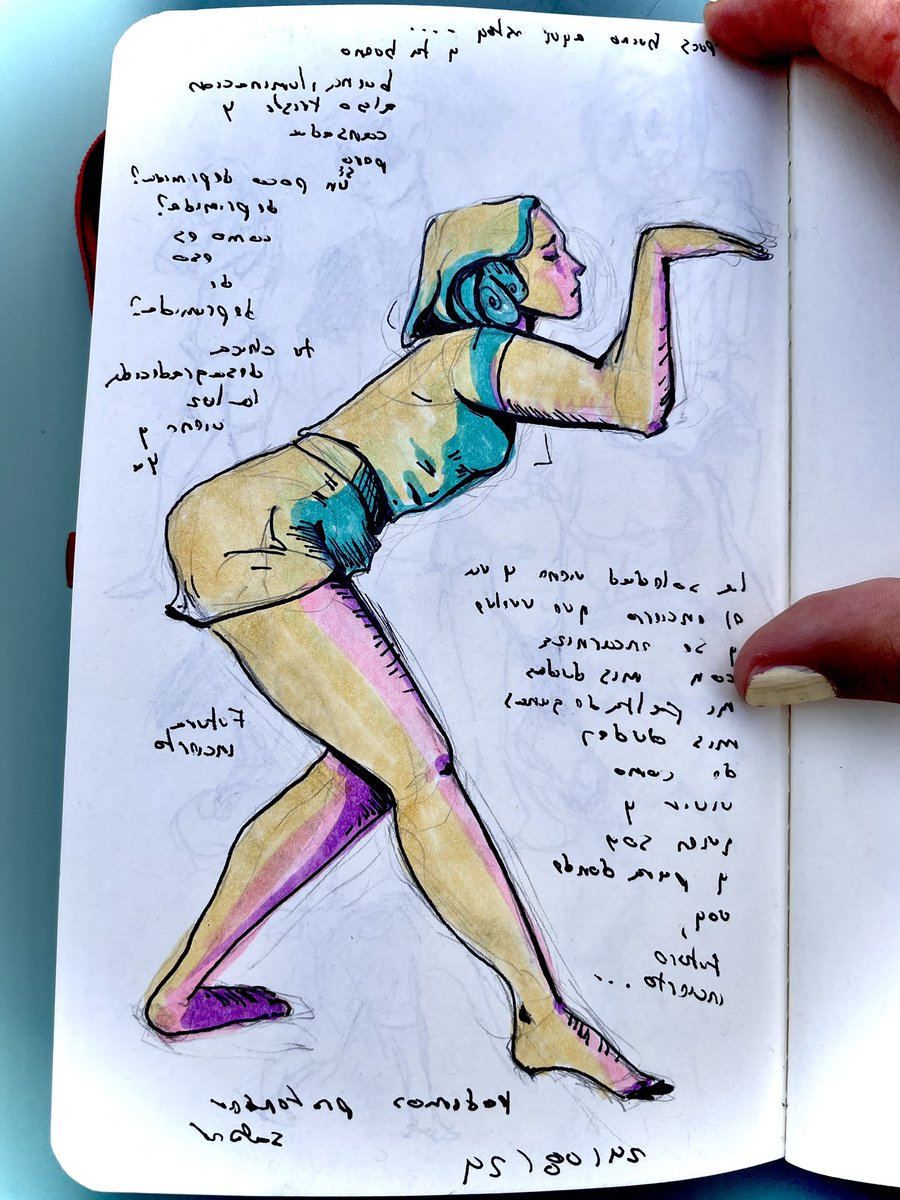 pues bueno aqui estoy ....
y tu bueno
buena iluminacion
algo triste y
cansada
pero
sé
un poco deprimida?
deprimida?
como es
eso
de
deprimida?
tu chica
desagradecida
la luz
viene y
va
la soledad viene y va
el encierro que vuelve
y se
con mis dudas
mi falta de ganas
mis dudas
de como
vivir y
quien soy
y para donde
voy,
futuro
incierto ...
Futuro
incierto
podemos pretender
saber
24/08/24